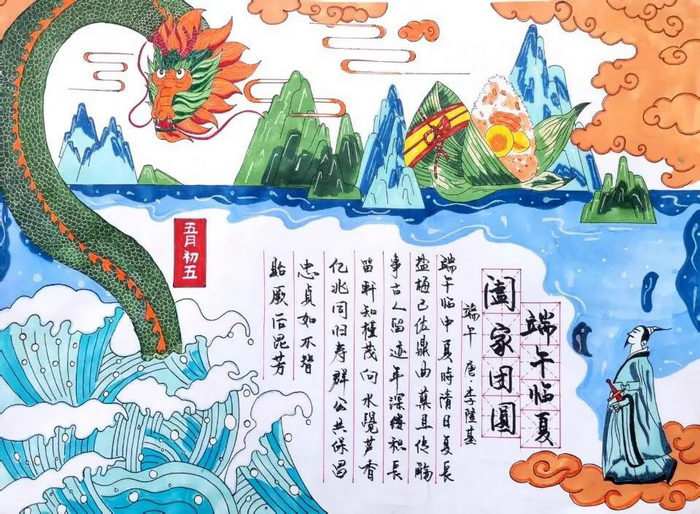 端午临夏
阖家团圆
端午 唐·李隆基
端午临中夏時清日复長
盐梅已佐鼎曲蘖且传觞
事古人留迹年深缕积長
當軒知槿茂向水覺芦香
亿兆同归寿群公共保昌
忠貞如不替
貽厥后昆芳
五月初五